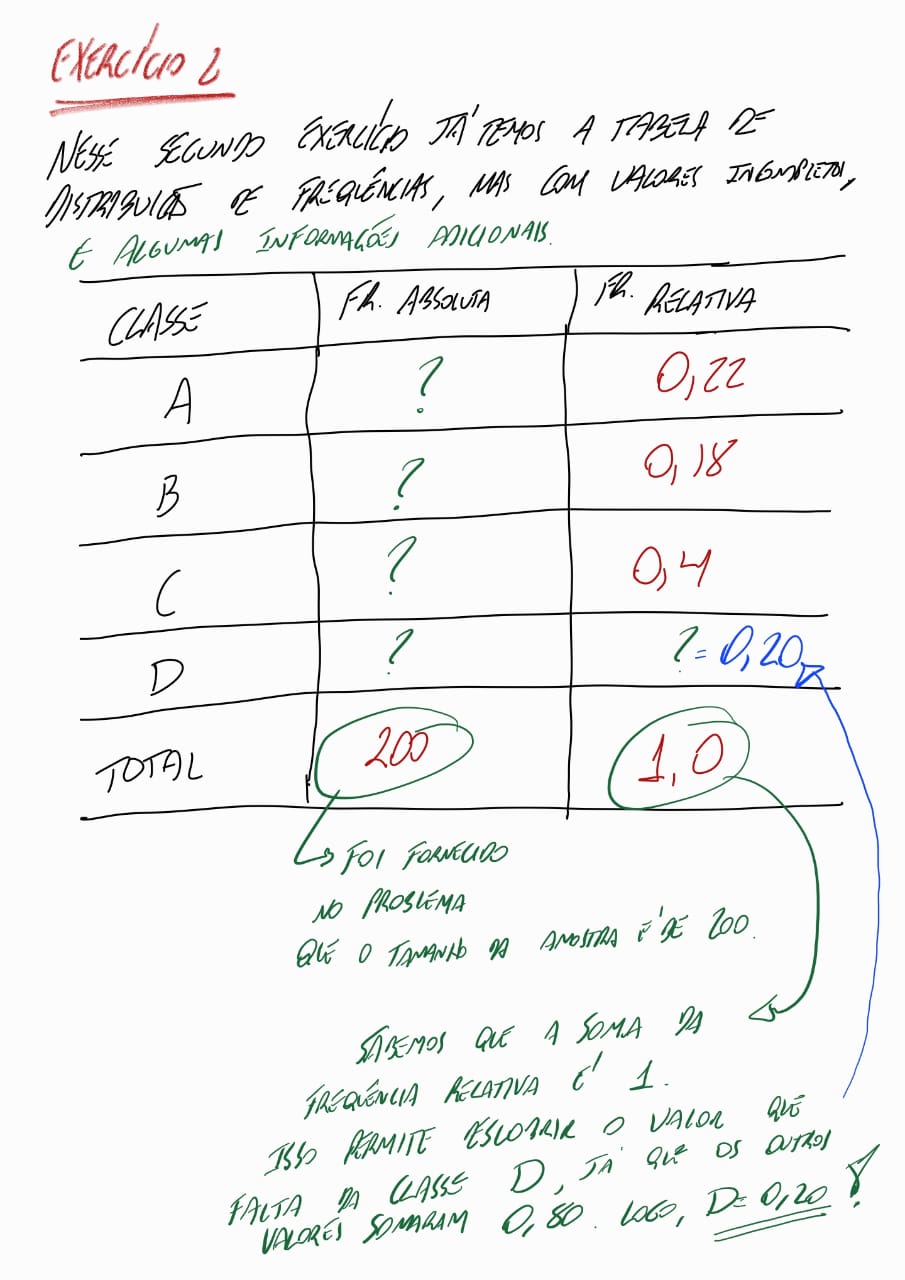 EXERCÍCIO 2
NESSE SEGUNDO EXERCÍCIO JÁ TEMOS A TABELA DE
DISTRIBUIÇÃO DE FREQUÊNCIAS, MAS COM VALORES INCOMPLETOS,
E ALGUMAS INFORMAÇÕES ADICIONAIS.
CLASSE FR. ABSOLUTA FR. RELATIVA
A ? 0,22
B ? 0,18
C ? 0,4
D ? ? = 0,20
TOTAL 200 1,0
FOI FORNECIDO
NO PROBLEMA
QUE O TAMANHO DA AMOSTRA É DE 200.
SABEMOS QUE A SOMA DA
FREQUÊNCIA RELATIVA É 1.
ISSO PERMITE DESCOBRIR O VALOR QUE
FALTA DA CLASSE D, JÁ QUE OS OUTROS
VALORES SOMARAM 0,80. LOGO, D = 0,20!